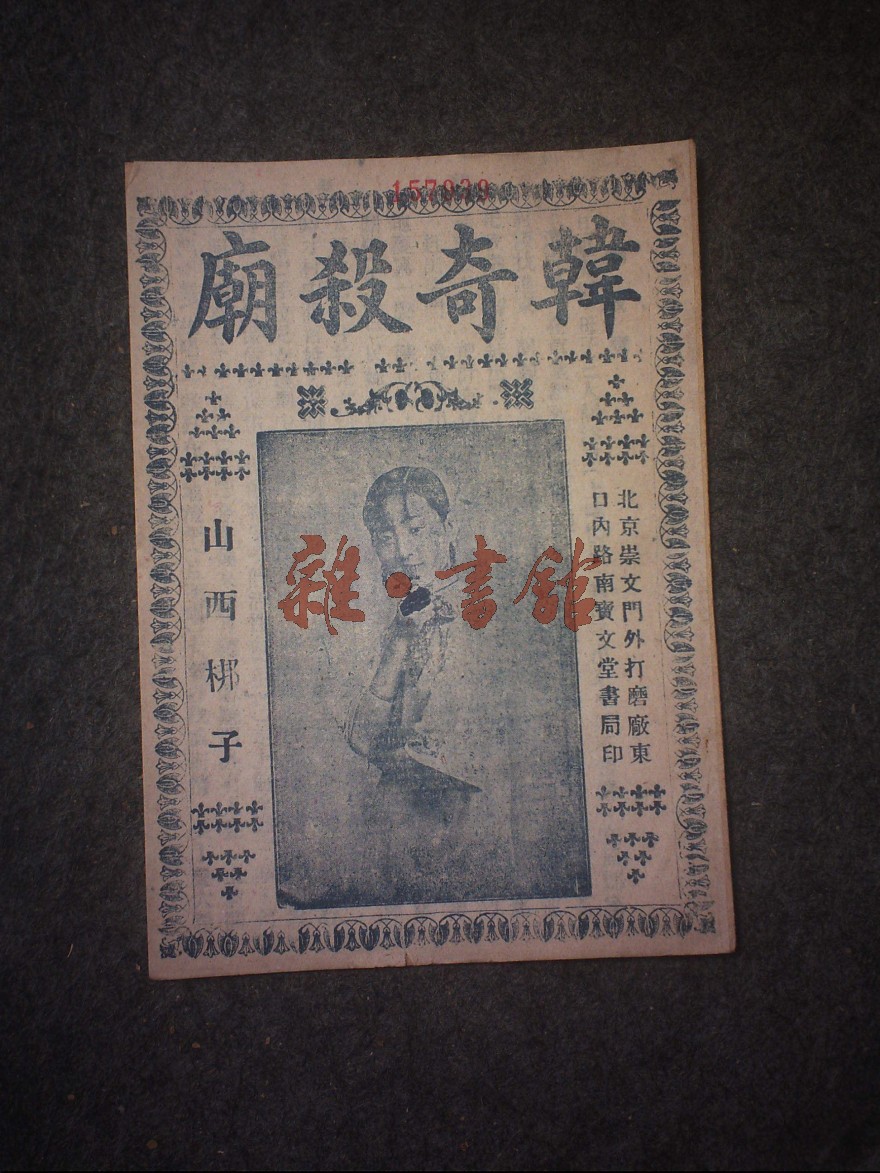 157939
韓奇殺廟
北京崇文門外打磨廠東
口內路南寶文堂書局印
山西梆子
雜·書館